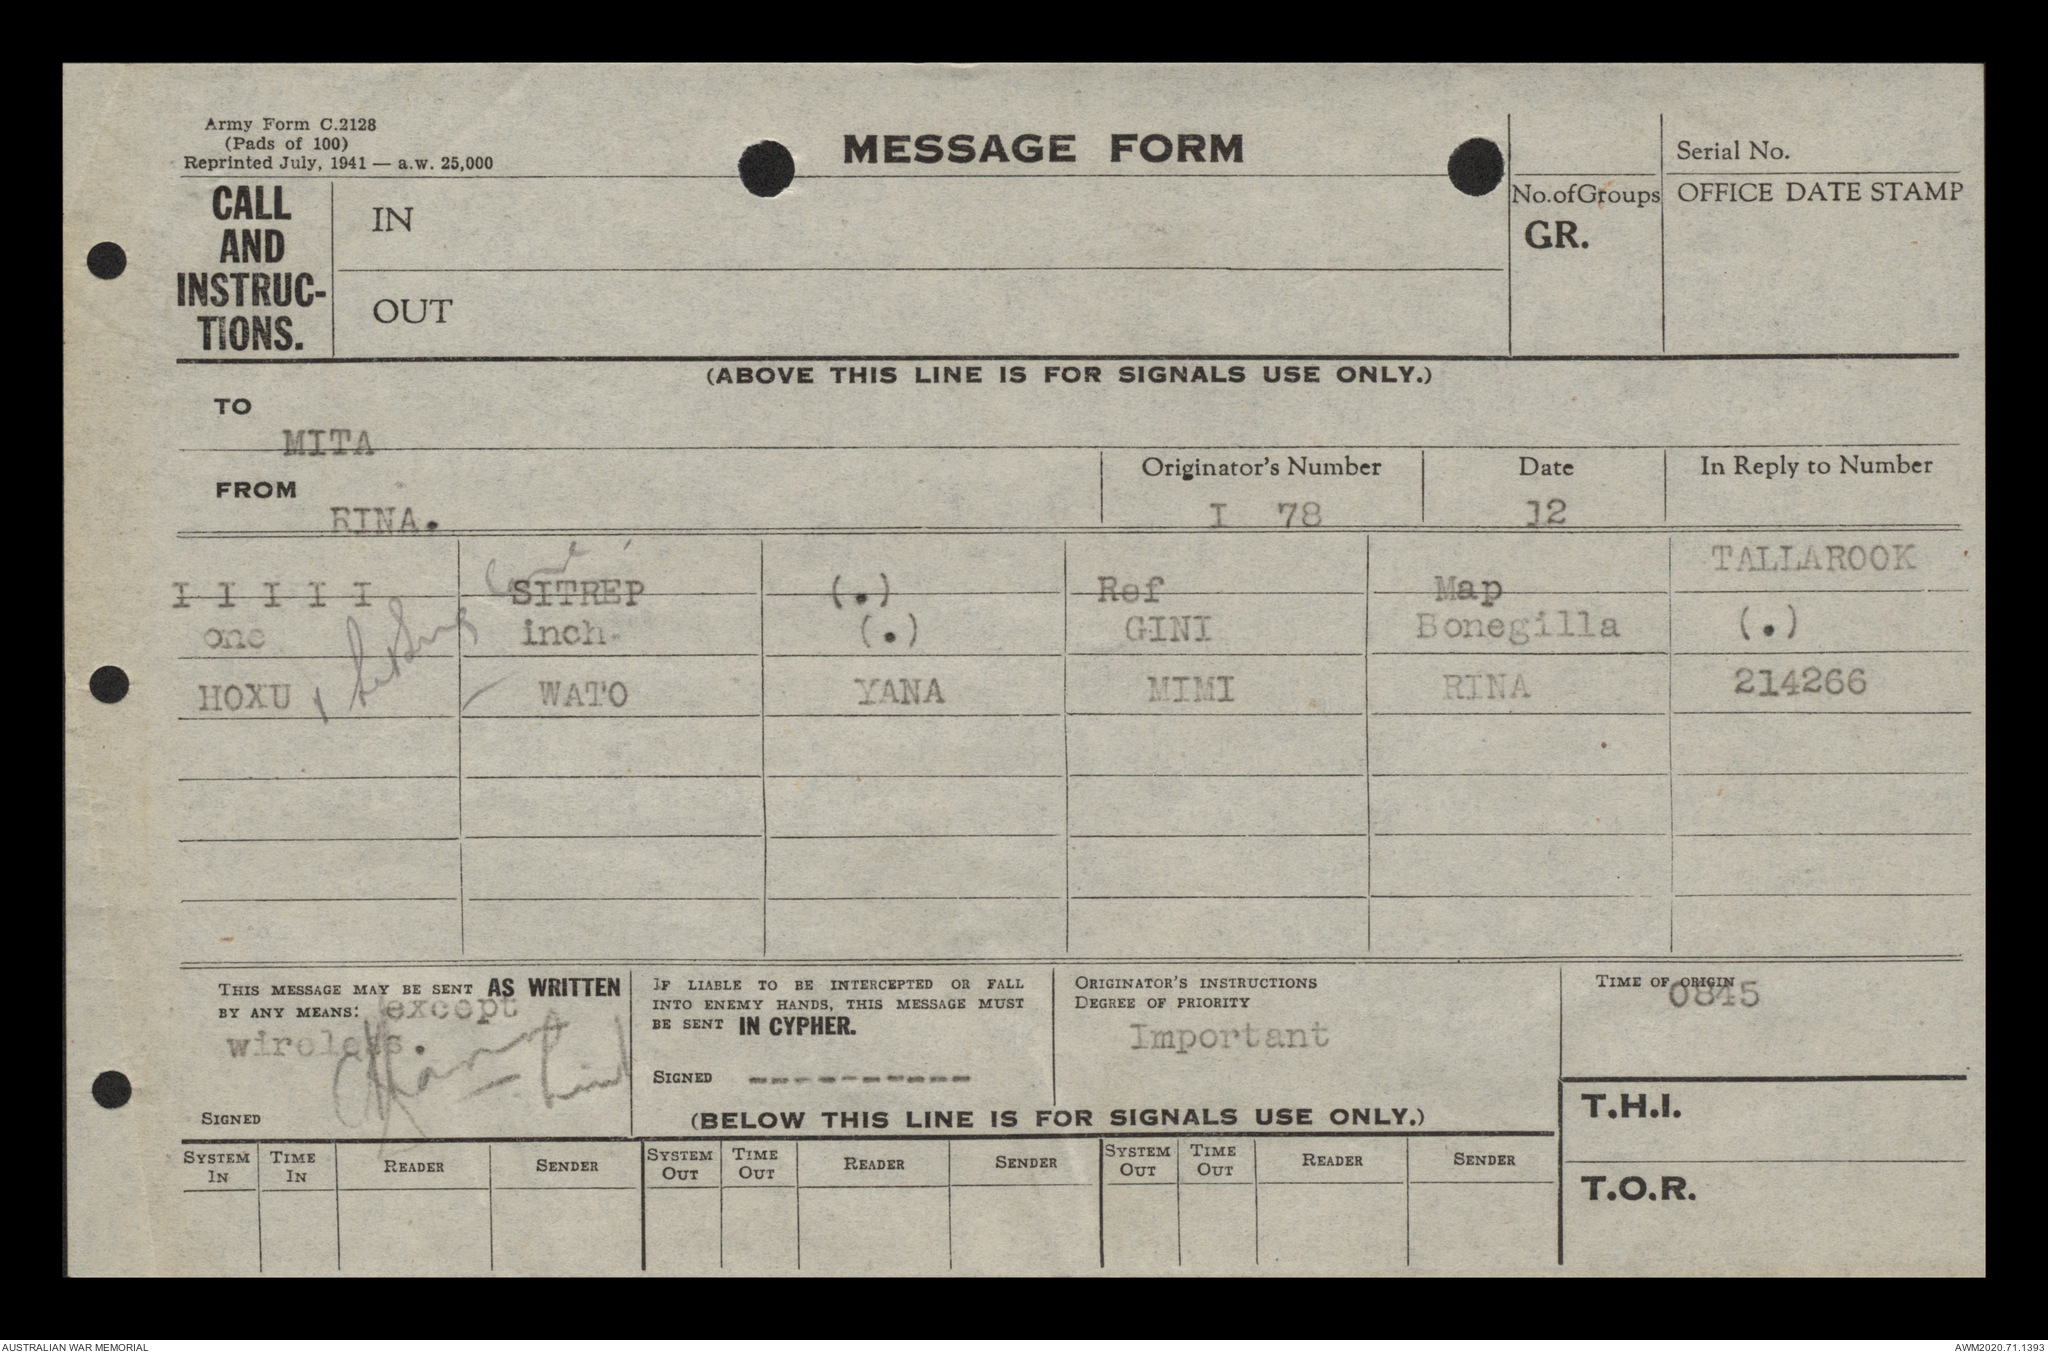 Army Form C.2128
(Pads of 100)
Reprinted July, 1941 — a.w. 25,000
MESSAGE FORM
Serial No.
CALL
AND
INSTRUC-
TIONS.
IN
OUT
No.ofGroups
GR.
OFFICE DATE STAMP
(ABOVE THIS LINE IS FOR SIGNALS USE ONLY.)
TO
MITA
FROM
RINA.
Originator's Number
I 78
Date
12
In Reply to Number
I I I I I SITREP (.) Ref Map TALLAROOK
one inch (.) GINI Bonegilla (.)
HOXU WATO YANA MIMI RINA 214266
THIS MESSAGE MAY BE SENT AS WRITTEN
BY ANY MEANS: except
wireless.
SIGNED
IF LIABLE TO BE INTERCEPTED OR FALL
INTO ENEMY HANDS, THIS MESSAGE MUST
BE SENT IN CYPHER.
SIGNED ----------
ORIGINATOR'S INSTRUCTIONS
DEGREE OF PRIORITY
Important
TIME OF ORIGIN
0845
(BELOW THIS LINE IS FOR SIGNALS USE ONLY.)
T.H.I.
T.O.R.
SYSTEM IN
TIME IN
READER
SENDER
SYSTEM OUT
TIME OUT
READER
SENDER
SYSTEM OUT
TIME OUT
READER
SENDER
AUSTRALIAN WAR MEMORIAL
AWM2020.71.1393